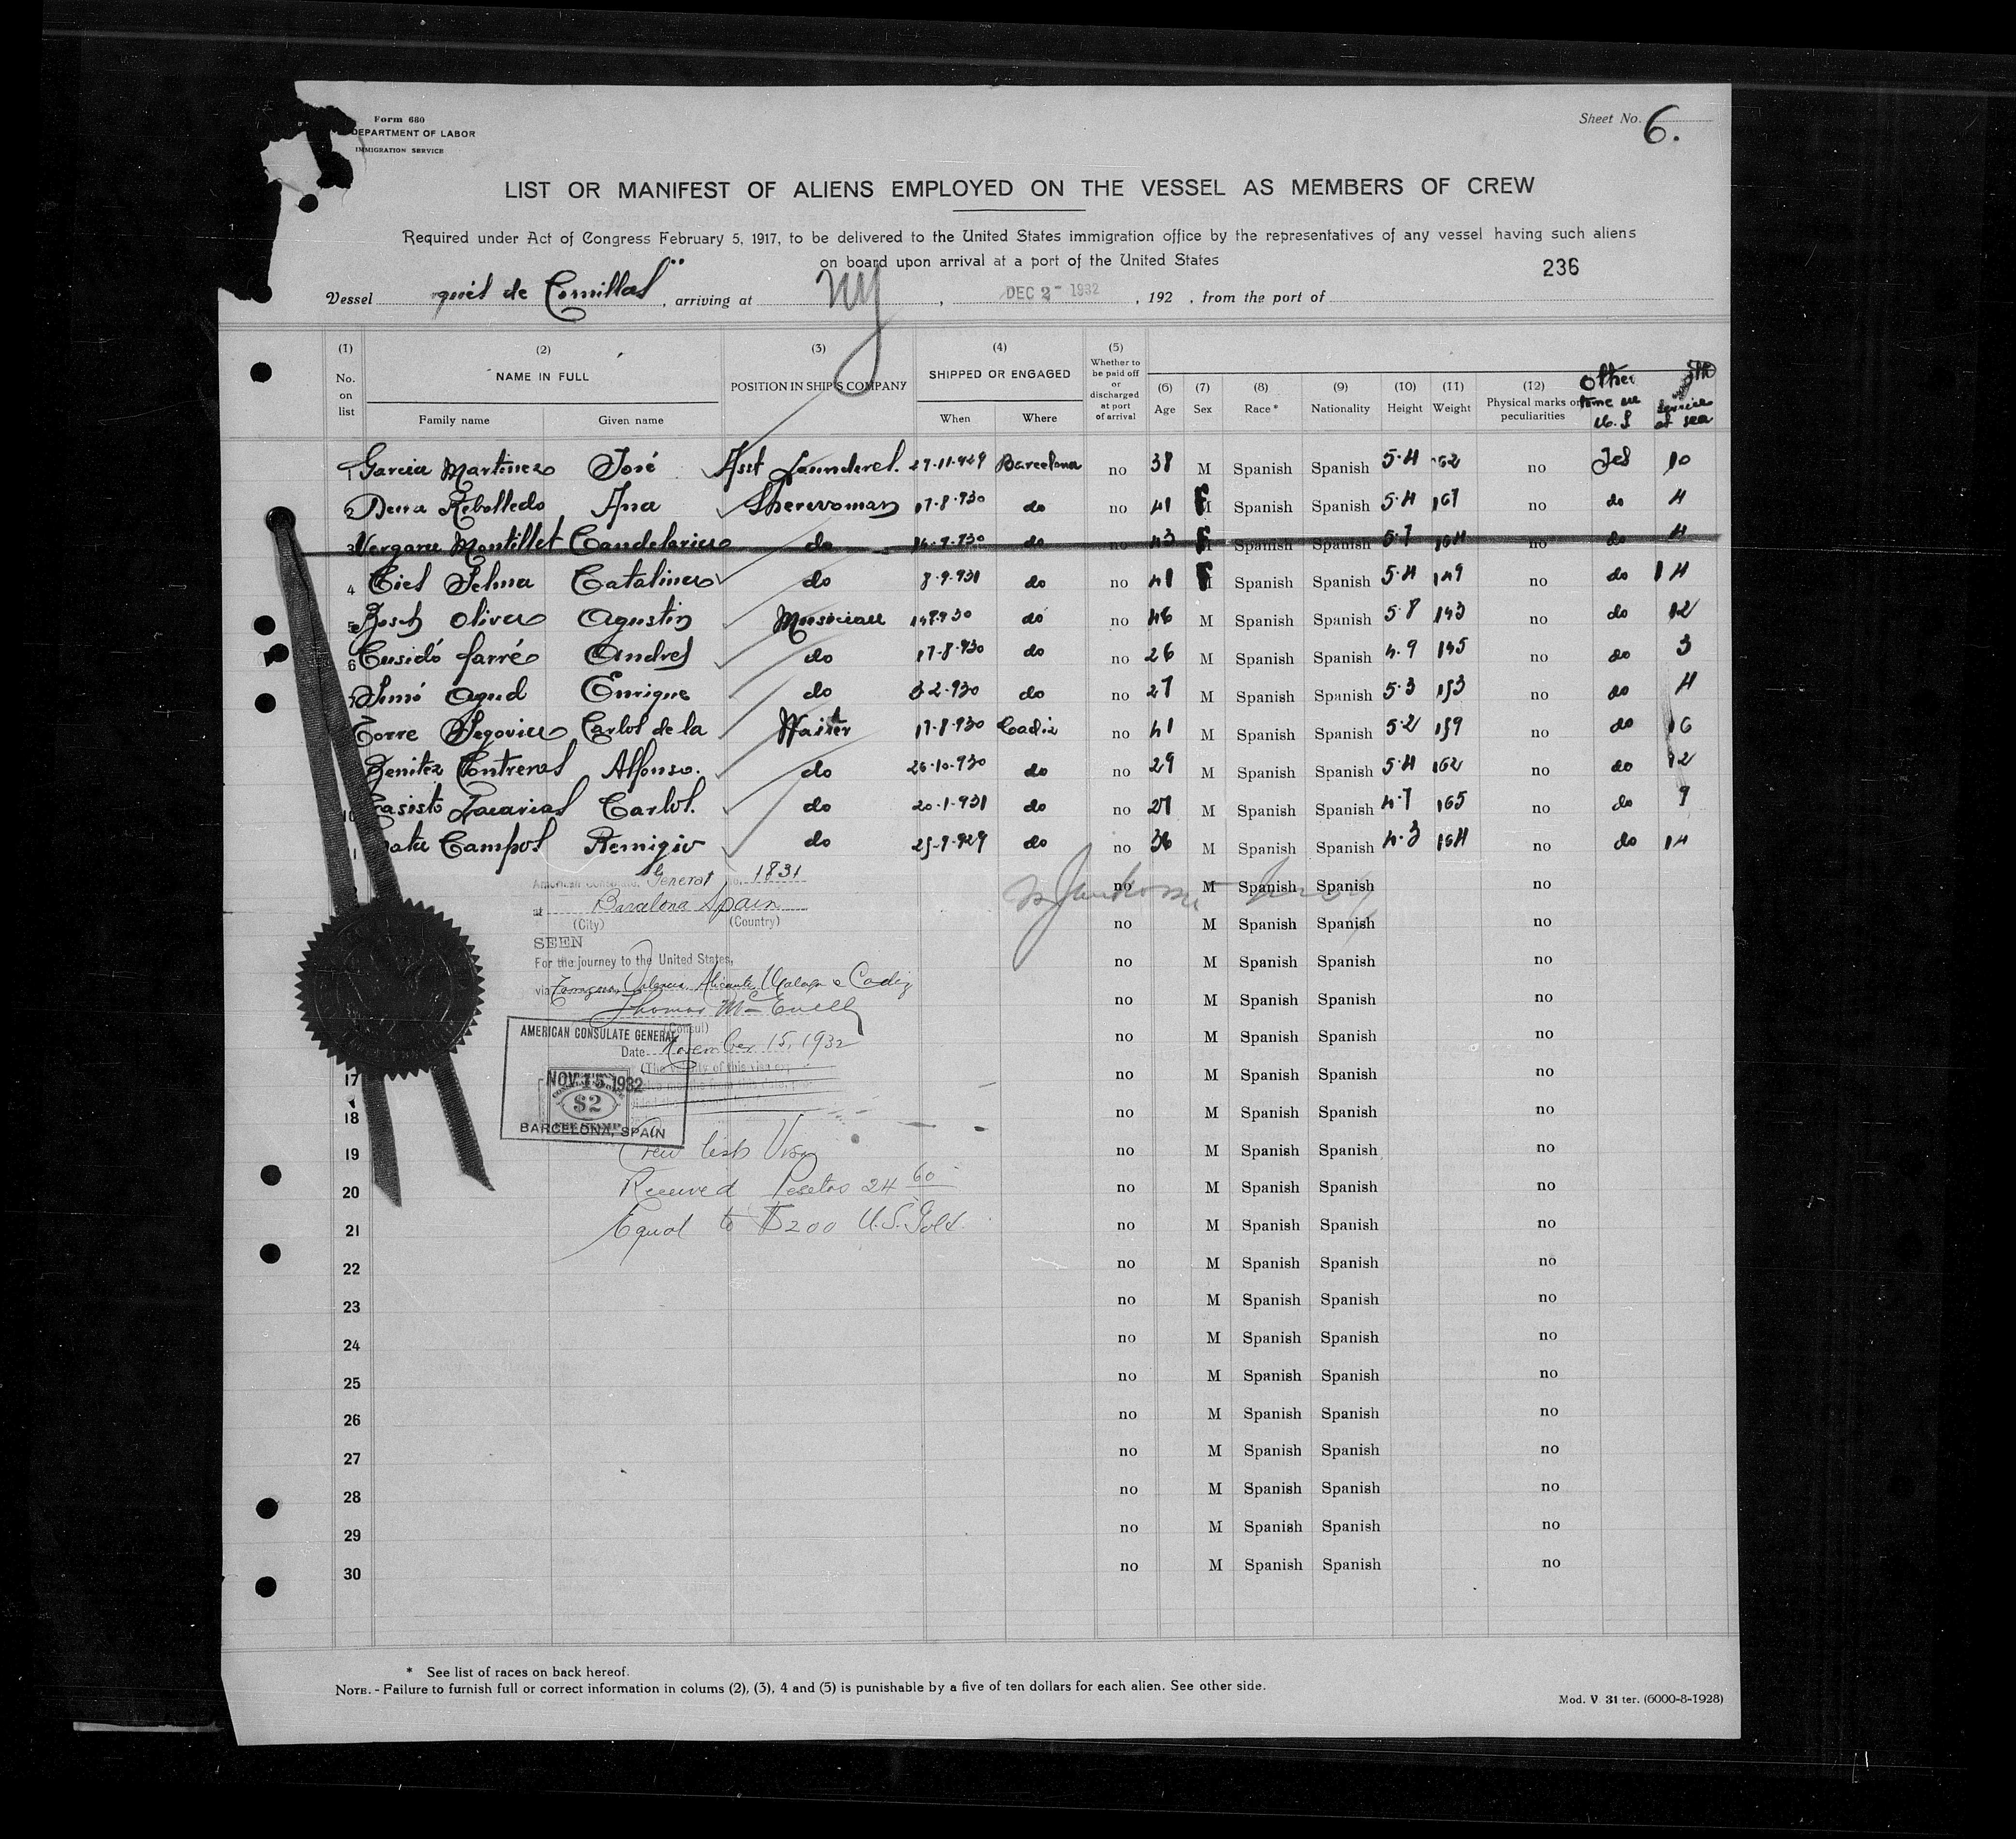 Form 680
DEPARTMENT OF LABOR
IMMIGRATION SERVICE
Sheet No. 6.
LIST OR MANIFEST OF ALIENS EMPLOYED ON THE VESSEL AS MEMBERS OF CREW
Required under Act of Congress February 5, 1917, to be delivered to the United States immigration office by the representatives of any vessel having such aliens
on board upon arrival at a port of the United States
236
Vessel de Comillas", arriving at NY, DEC 2- 1932, 192 , from the port of
(1) (2) (3) (4) (5)
No. on list NAME IN FULL POSITION IN SHIP'S COMPANY SHIPPED OR ENGAGED Whether to be paid off or discharged at port of arrival (6) Age (7) Sex (8) Race* (9) Nationality (10) Height (11) Weight (12) Physical marks or peculiarities Other time in U.S service at sea
Family name Given name When Where
1 Garcia Martinez José Asst 27-11-929 Barcelona no 38 M Spanish Spanish 5·4 162 no Yes 10
2 Rebolledo Ana 17-8-930 do no 41 F Spanish Spanish 5·4 167 no do 4
3 Vergara Montillet Candelaria do do no 43 F Spanish Spanish 5·7 164 no do 4
4 Catalina do 8-9-931 do no 41 F Spanish Spanish 5·4 149 no do 14
5 Bosch Oliver Agustin Musician do no 46 M Spanish Spanish 5·8 143 no do 12
6 Cusidó Farré Andres do 17-8-930 do no 26 M Spanish Spanish 4·9 145 no do 3
7 Simó Agud Enrique do 930 do no 27 M Spanish Spanish 5·3 153 no do 4
Torre Segovia Carlos de la Waiter 17-8-930 Cadiz no 41 M Spanish Spanish 5·2 159 no do 16
Benitez Contreras Alfonso. do 26-10-930 do no 29 M Spanish Spanish 5·4 162 no do 12
10 Carlos. do 20-1-931 do no 27 M Spanish Spanish 4·7 165 no do 9
Campos Remigio do 929 do no 36 M Spanish Spanish 4·3 164 no do 14
American Consulate General No. 1831
no M Spanish Spanish no
at Barcelona Spain
(City) (Country)
no M Spanish Spanish no
SEEN
For the journey to the United States,
no M Spanish Spanish no
via Tarragona, Valencia, Alicante, Malaga & Cadiz
no M Spanish Spanish no
Thomas
(Consul)
no M Spanish Spanish no
Date November 15, 1932
AMERICAN CONSULATE GENERAL
NOV 15 1932
$2
BARCELONA, SPAIN
17 no M Spanish Spanish no
18 no M Spanish Spanish no
Crew list Visa
19 no M Spanish Spanish no
Received Pesetas 24 60
20 no M Spanish Spanish no
Equal to $200 U.S. Gold.
21 no M Spanish Spanish no
22 no M Spanish Spanish no
23 no M Spanish Spanish no
24 no M Spanish Spanish no
25 no M Spanish Spanish no
26 no M Spanish Spanish no
27 no M Spanish Spanish no
28 no M Spanish Spanish no
29 no M Spanish Spanish no
30 no M Spanish Spanish no
* See list of races on back hereof.
NOTE. - Failure to furnish full or correct information in colums (2), (3), 4 and (5) is punishable by a five of ten dollars for each alien. See other side.
Mod. V 31 ter. (6000-8-1928)